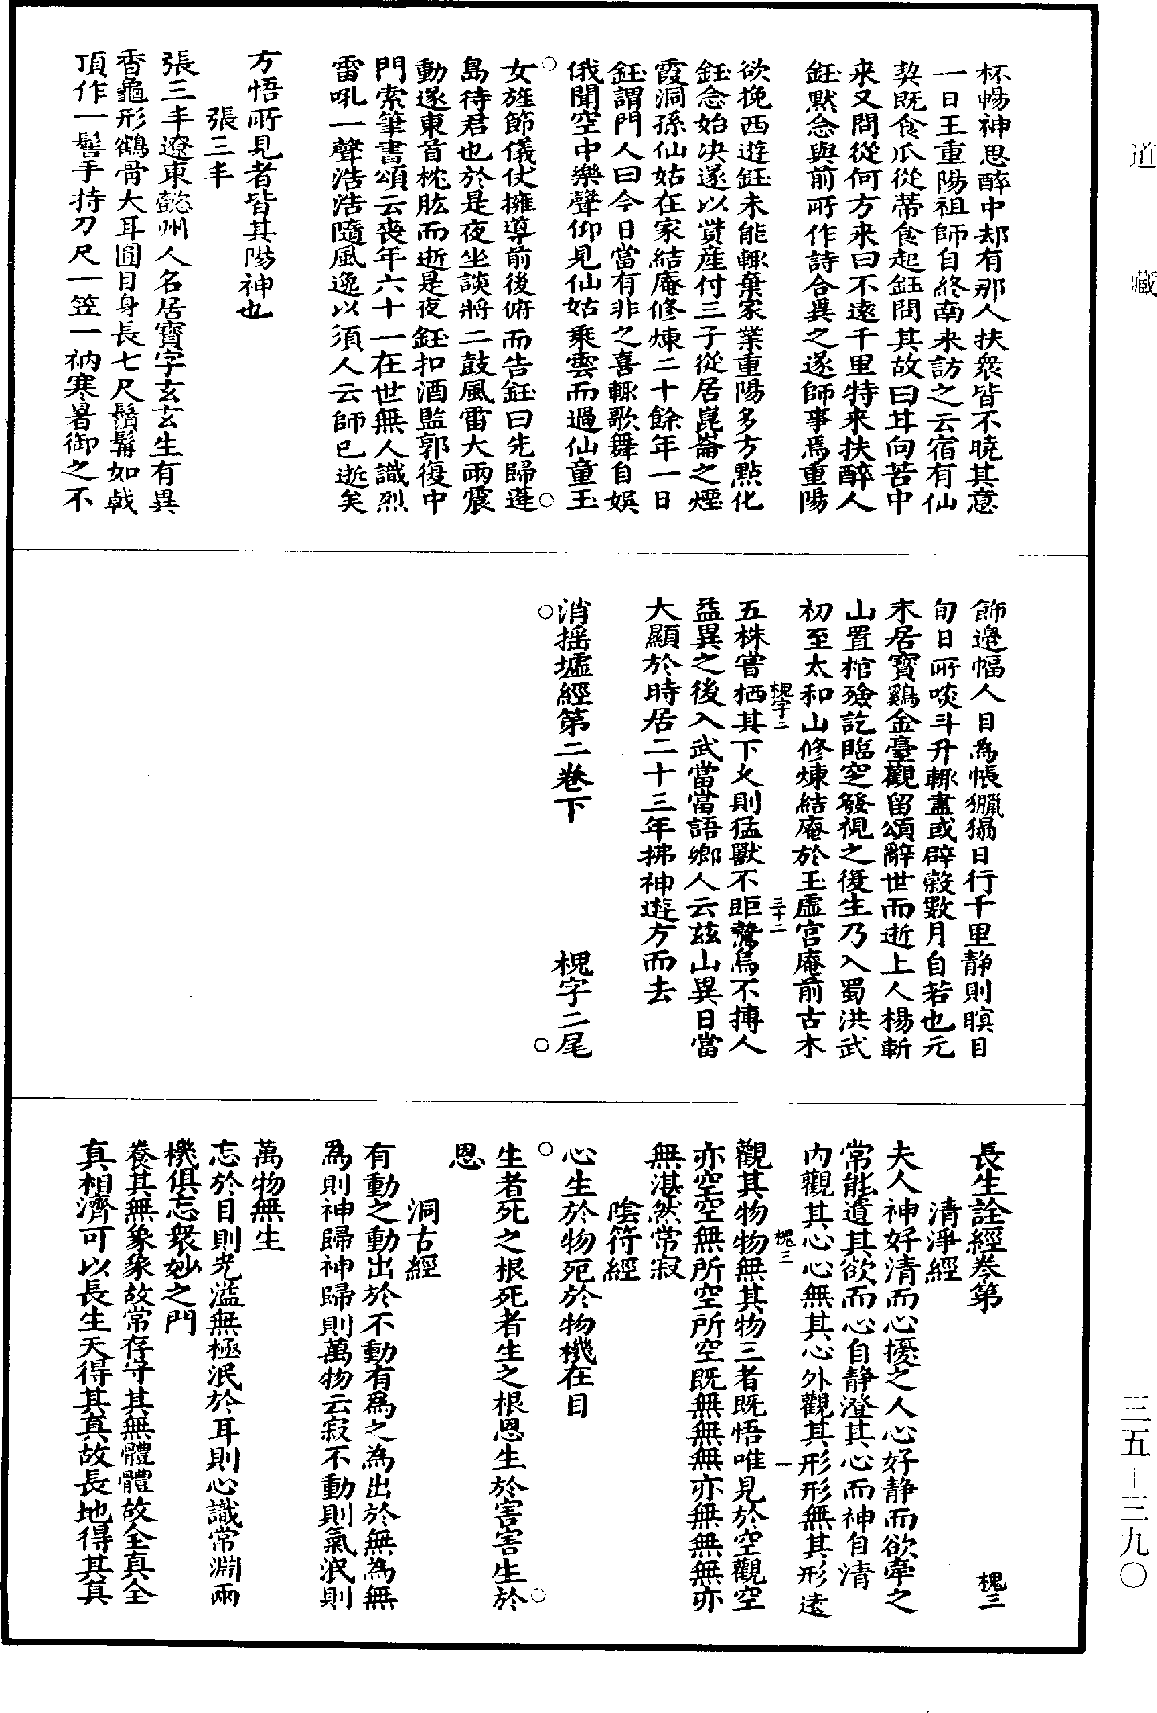 道藏
杯暢神思醉中却有那人扶衆皆不曉其意
一日王重陽祖師自終南來訪之云宿有仙
契既食瓜從蒂食起鈺問其故曰甘向苦中
來又問從何方來曰不遠千里特來扶醉人
鈺默念與前所作詩合異之遂師事焉重陽
欲挽西遊鈺未能輒棄家業重陽多方點化
鈺念始決遂以貲産付三子從居崑崙之煙
霞洞孫仙姑在家結庵修煉二十餘年一日
鈺謂門人曰今日當有非之喜輒歌舞自娛
俄聞空中樂聲仰見仙姑乘雲而過仙童玉
女旌節儀仗擁導前後俯而告鈺曰先歸蓬
島待君也於是夜坐談將二鼓風雷大雨震
動遂東首枕肱而逝是夜鈺扣酒監郭復中
門索筆書頌云喪年六十一在世無人識烈
雷吼一聲浩浩隨風逸以須人云師已逝矣
方悟所見者皆其陽神也
張三丰
張三丰遼東懿州人名居寶字玄玄生有異
香龜形鶴骨大耳圓目身長七尺鬚髯如戟
頂作一髻手持刀尺一笠一衲寒暑御之不
飾邊幅人目為帳獵獦日行千里静則瞑目
旬日所啖斗升輒盡或辟穀數月自若也元
末居寶鷄金臺觀留頌辭世而逝上人楊軒
山置棺殮訖臨窆發視之復生乃入蜀洪武
初至太和山修煉結庵於玉虛宫庵前古木
槐字二
三十二
五株嘗栖其下久則猛獸不距鷙鳥不搏人
益異之後入武當當語鄉人云兹山異日當
大顯於時居二十三年拂神遊方而去
消摇墟經第二卷下
槐字二尾
長生詮經卷第
槐三
清淨經
夫人神好清而心擾之人心好静而欲牽之
常能遣其欲而心自静澄其心而神自清
内觀其心心無其心外觀其形形無其形遠
槐三
一
觀其物物無其物三者既悟唯見於空觀空
亦空空無所空所空既無無無亦無無無亦
無湛然常寂
陰符經
心生於物死於物機在目
生者死之根死者生之根恩生於害害生於
恩
洞古經
有動之動出於不動有為之為出於無為無
為則神歸神歸則萬物云寂不動則氣泯則
萬物無生
忘於目則光溢無極泯於耳則心識常淵兩
機俱忘衆妙之門
養其無象象故常存守其無體體故全真全
真相濟可以長生天得其真故長地得其真
三五—三九〇